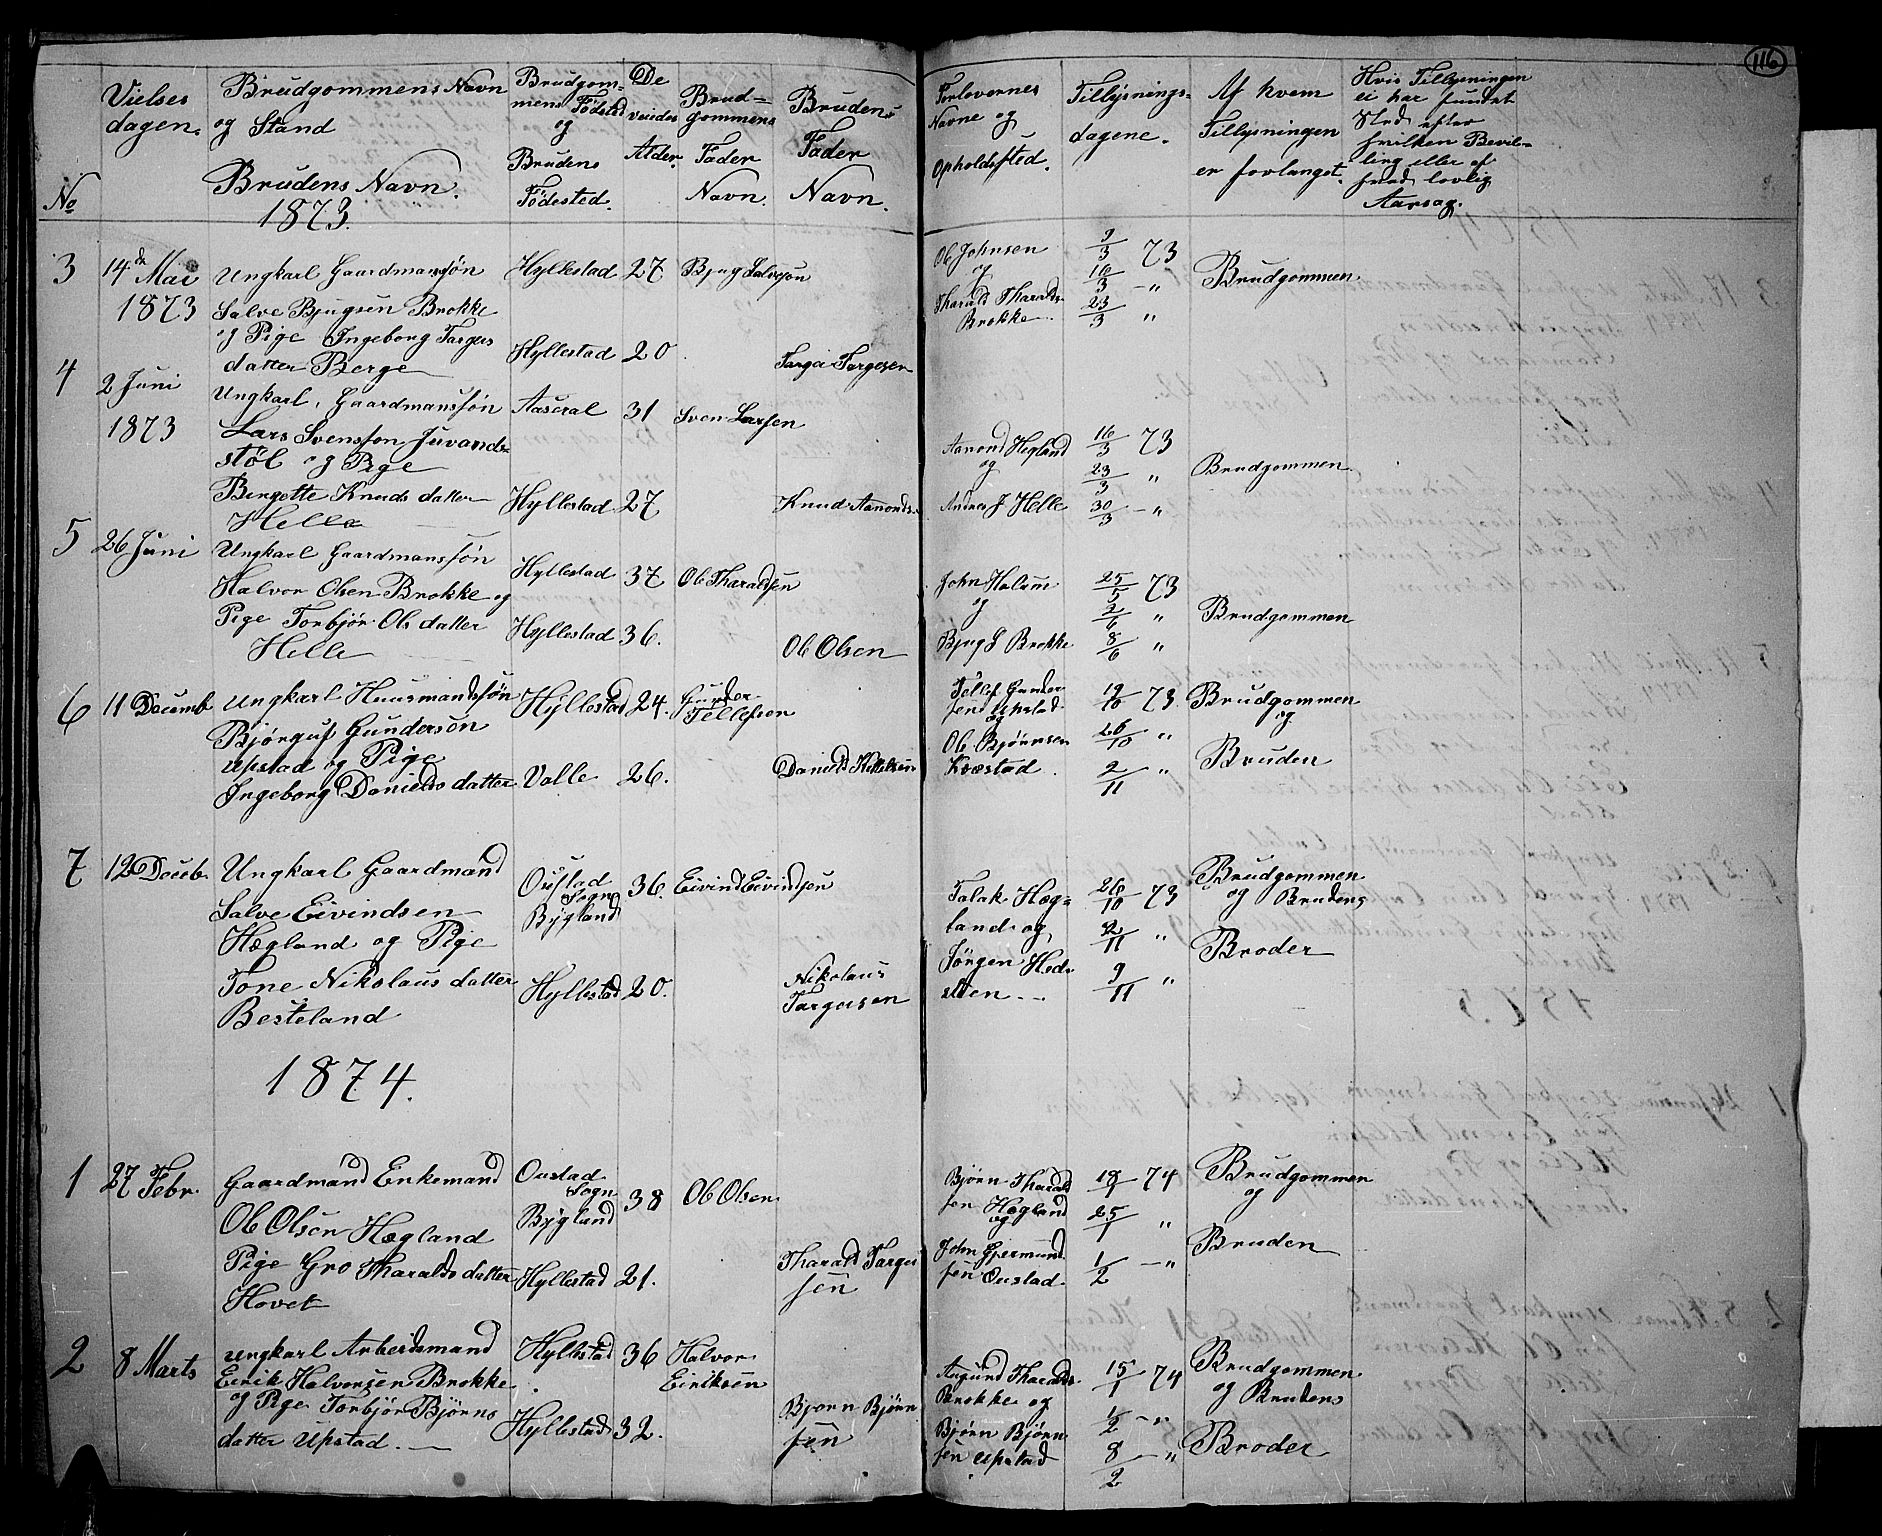 116
No
Vielses
dagen.
Brudgommens Navn
og Stand
Brudens Navn.
1873.
Brudgom-
mens Födsted
og
Brudens
Födested.
De
viedes
Alder.
Brud-
gommens
Fader
Navn.
Brudens
Fader
Navn.
Forlovernes
Navne og
Opholdsted.
Tillysnings-
dagene.
Af hvem
Tillysningen
er forlanget.
Hvis Tillysningen
ei har fundet
Sted efter
hvilken Bevil-
ling eller af
hvad lovlig
Aarsag.
3
14de Mai
1873
Ungkarl Gaardmansøn
Salve Bjugsen Brokke
og Pige Ingeborg Targus
datter Berge
Hyllestad
Hyllestad
27
20
Bjug Salvesøn
Targei Targesen
Ole Johnsen
og
Tharald Tharalds-
Brokke
9/3 73
16/3 - "
23/3 "
Brudgommen
4
2 Juni
1873
Ungkarl, Gaardmanssøn
Lars Svensson Juvands-
støl og Pige
Bergette Knuds datter
Helle
Aaseral
Hyllestad
31
27
Sven Larsen
Knud Aanonds.
Aanond Hegland
og
Andres J Helle
16/3 73
23/3 "
30/3 - "
Brudgommen.
5
26 Juni
Ungkarl Gaardmanssøn
Halvor Olsen Brokke og
Pige Torbjør Ols datter
Helle
Hyllestad
Hyllestad
37
36.
Ole Tharaldsen
Ole Olsen
John Holum
og
Bjug S Brokke
25/5 73
2/6 "
8/6 "
Brudgommen
6
11 Decemb
Ungkarl Huusmandssøn
Bjørguf Gundersøn
Upstad og Pige
Ingeborg Daniels datter
Hyllestad
Valle
24.
26.
Gunder
Tellefsen
Daniels Kittelsen
Tellef Gunder
sen Upstad
og
Ole Bjørnsen
Kvæstad.
19/10 73
26/10 "
2/11 "
Brudgommen
og
Bruden
7
12 Deceb.
Ungkarl Gaardmand
Salve Eivindsen
Hægland og Pige
Tone Nikolaus datter
Besteland
Oustad
Sogn
Bygland
Hyllestad
36.
20.
Eivind Eivindsøn
Nikolaus
Targeisen
Talak Hæg-
land og
Jörgen Hode
stten
26/10 73
2/11 "
9/11 "
Brudgommen
og Brudens
Broder
1874.
1
27 Febr.
Gaardmand Enkemand
Ole Olsen Hægland
Pige Gro Tharalds datter
Hovet
Oustad
Sogn
Bygland
Hyllestad
38
21.
Ole Olsen
Tharald Targei
sen
Bjørn Tharald
sen Hægland
og
John Gjermund
sen Oustad.
18/1 74
25/1 "
1/2 - "
Brudgommen
og
Bruden
2
8 Marts
Ungkarl Arbeidsmand
Eirik Halvorsen Brokke
og Pige Torbjør Bjørns
datter Upstad.
Hyllestad
Hyllestad
36
32.
Halvor
Eiriksen
Bjørn Bjørn
sen
Augund Tharalds
Brokke og
Bjørn Bjørn
sen Upstad
15/1 74
1/2 - "
8/2 - "
Brudgommen
og Brudens
Broder